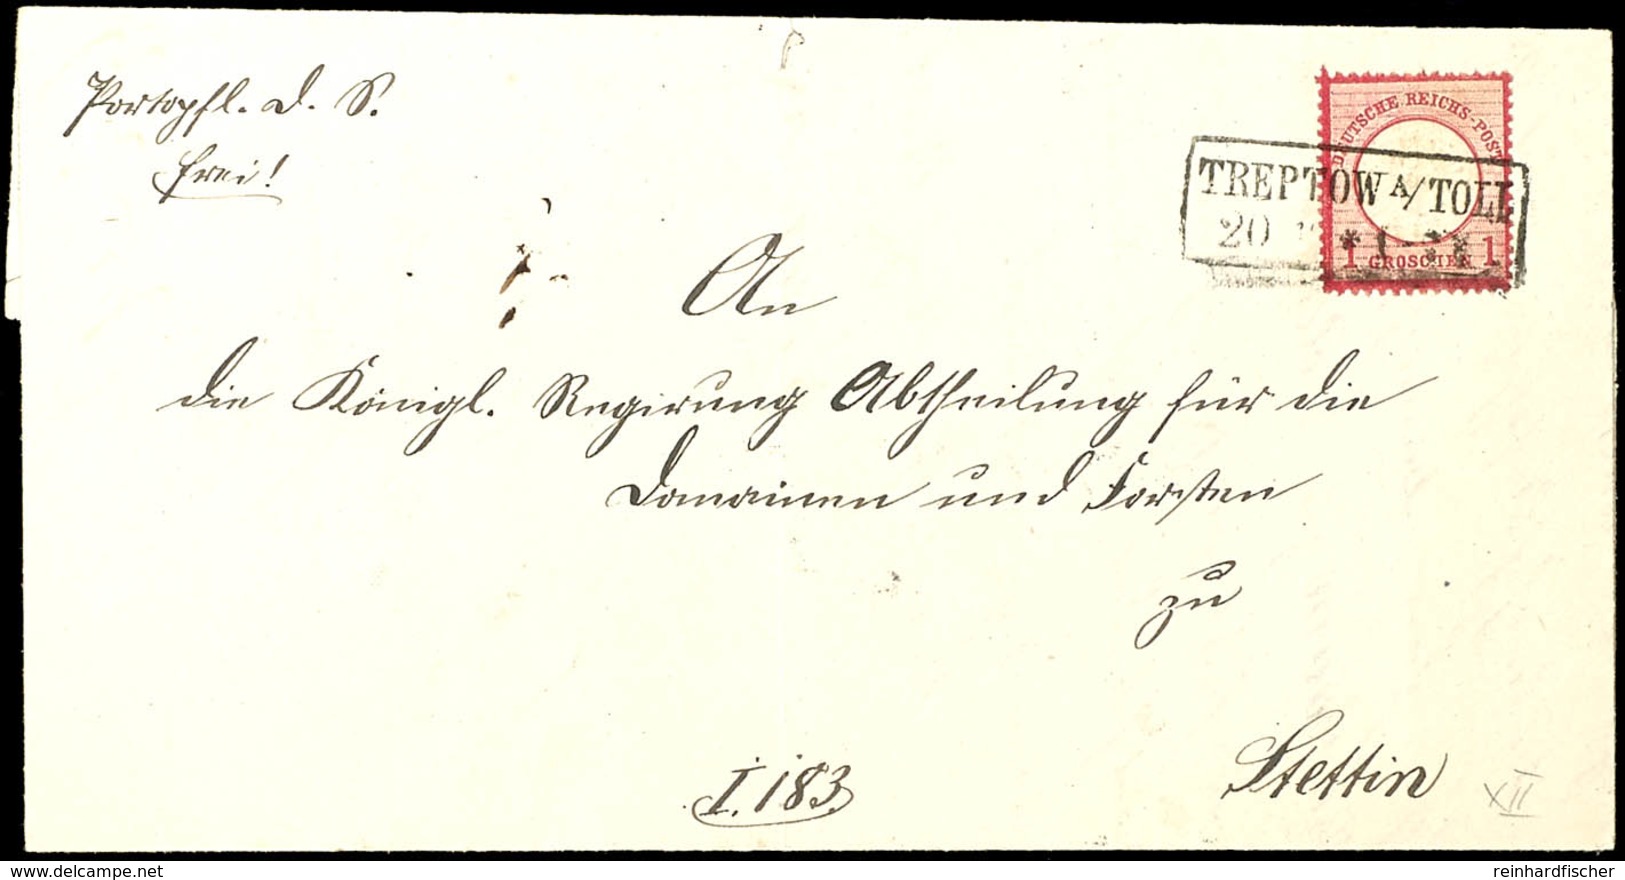 Portopfl. D. S.
frei!
DEUTSCHE REICHS-POST
1 GROSCHEN 1
TREPTOW A/TOLL
20
An
die Königl. Regierung Abtheilung für die
Domainen und Forsten
zu
Stettin
I. 183.
XII
reinhardfischer